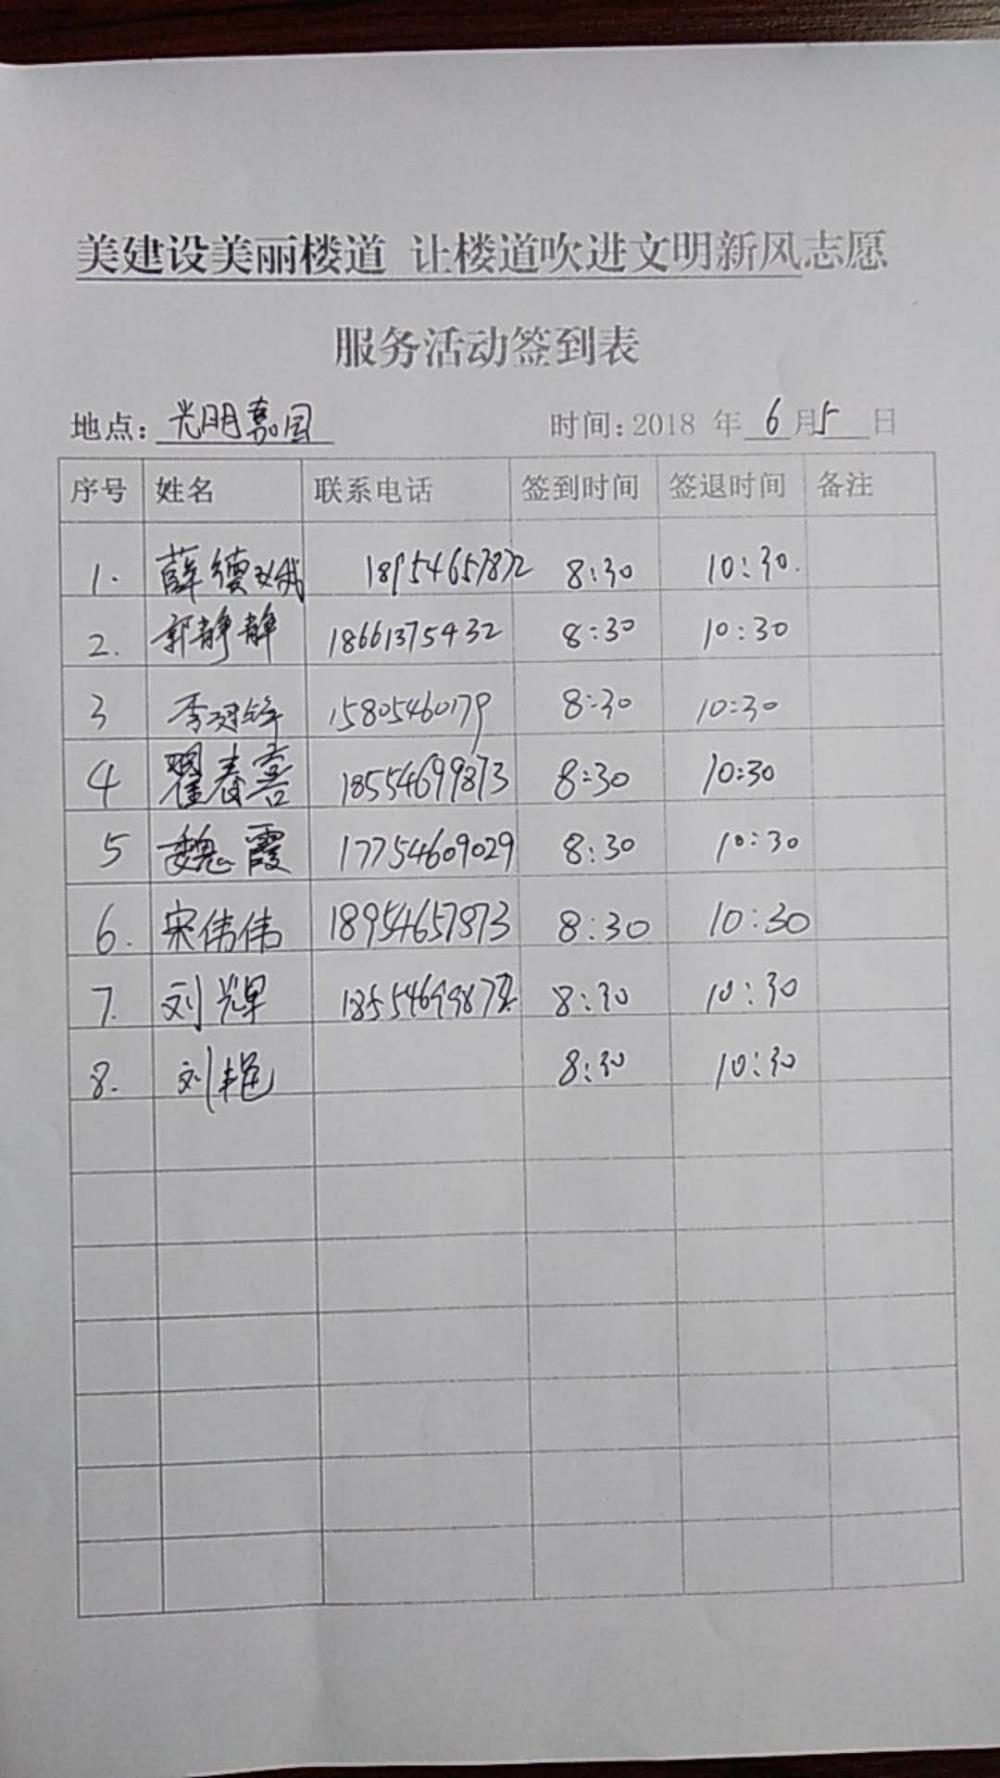 美建设美丽楼道 让楼道吹进文明新风志愿
服务活动签到表
地点: 光明嘉园 时间: 2018 年 6 月 5 日
序号 姓名 联系电话 签到时间 签退时间 备注
1. 薛德 18954657872 8:30 10:30.
2. 郭静静 18661375432 8:30 10:30
3 李 15805460179 8:30 10:30
4 翟春喜 18554699873 8:30 10:30
5 魏霞 17754609029 8:30 10:30
6. 宋伟伟 18954657873 8:30 10:30
7. 刘辉 18554699872 8:30 10:30
8. 刘艳 8:30 10:30